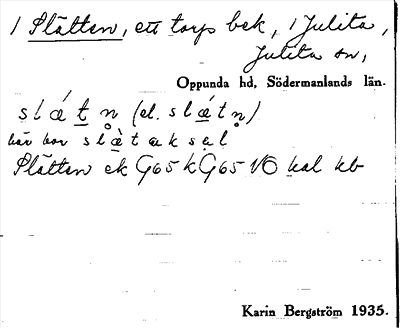 1 Slätten, ett torp bek, i Julita,
Julita sn,
Oppunda hd, Södermanlands län.
slǽt̲n̥ (el. slǽtn̥)
här bor slæ̀taksəl
Slätten ek G65 k G65 VÖ kal kb
Karin Bergström 1935.